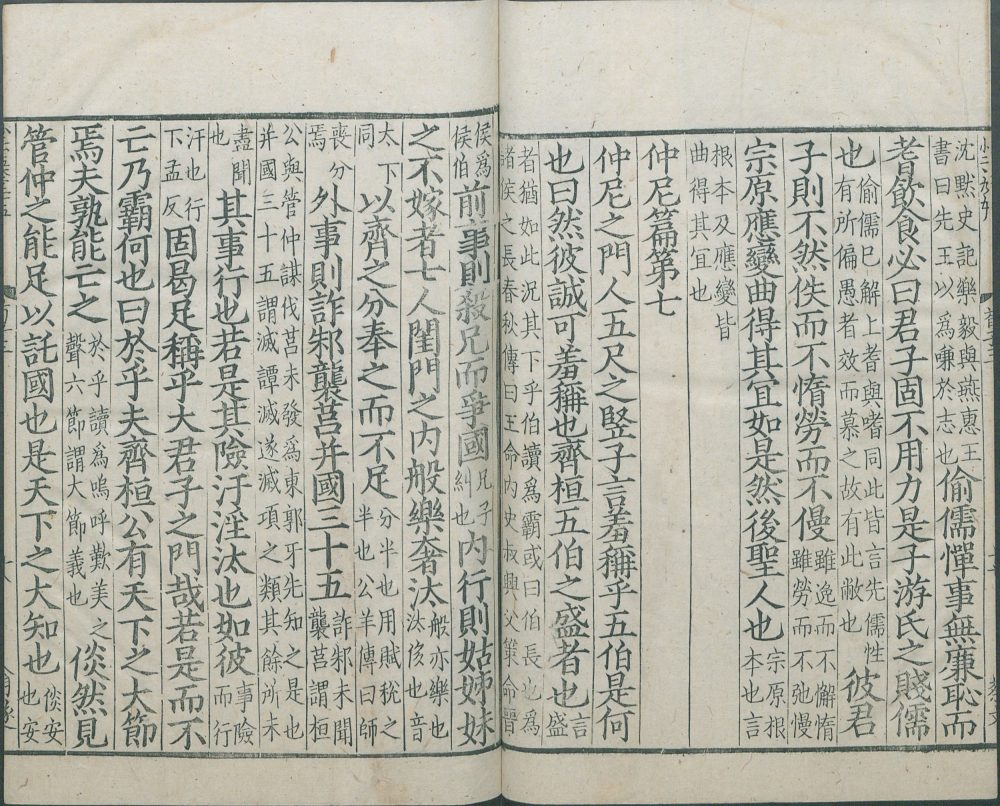 沈默史記樂毅與燕惠王
書曰先王以爲慊於志也
偷儒憚事無廉恥而
耆飲食必曰君子固不用力是子游氏之賤儒
也
偷儒已解上耆與嗜同此皆言先儒性
有所偏愚者效而慕之故有此敝也
彼君
子則不然佚而不惰勞而不僈
雖逸而不懈惰
雖勞而不弛慢
宗原應變曲得其宜如是然後聖人也
宗原根
本也言
根本及應變皆
曲得其宜也
仲尼篇第七
仲尼之門人五尺之豎子言羞稱乎五伯是何
也曰然彼誠可羞稱也齊桓五伯之盛者也
言
盛
者猶如此況其下乎伯讀爲霸或曰伯長也爲
諸侯之長春秋傳曰王命内史叔興父策命晉
侯爲
侯伯
前事則殺兄而爭國
兄子
糾也
内行則姑姊妹
之不嫁者七人閨門之内般樂奢汰
般亦樂也
汰侈也音
太下
同
以齊之分奉之而不足
分半也用賦稅之
半也公羊傳曰師
喪分
焉
外事則詐邾襲莒并國三十五
詐邾未聞
襲莒謂桓
公與管仲謀伐莒未發爲東郭牙先知之是也
并國三十五謂滅譚滅遂滅項之類其餘所未
盡聞
也
其事行也若是其險汙淫汰也如彼
事險
而行
汙也行
下孟反
固曷足稱乎大君子之門哉若是而不
亡乃霸何也曰於乎夫齊桓公有天下之大節
焉夫孰能亡之
於乎讀爲嗚呼歎美之
聲六節謂大節義也
倓然見
管仲之能足以託國也是天下之大知也
倓安
也安